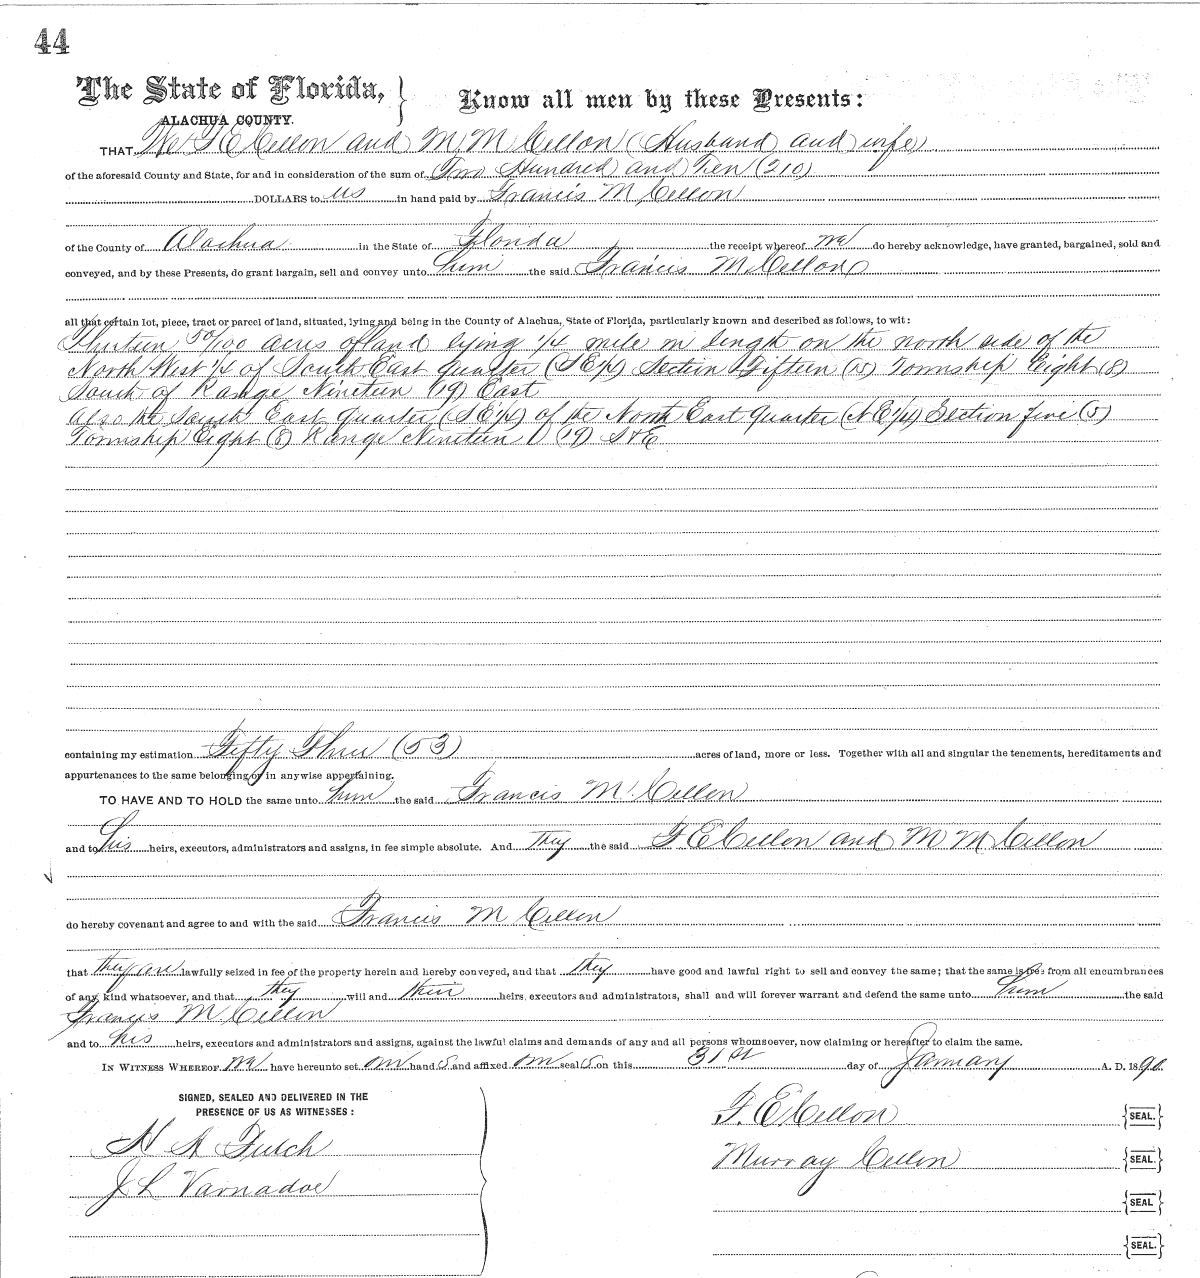 44
The State of Florida, } Know all men by these Presents:
ALACHUA COUNTY.
THAT We F E Cellon and M M Cellon (Husband and wife)
of the aforesaid County and State, for and in consideration of the sum of Two Hundred and Ten (210)
DOLLARS to us in hand paid by Francis M Cellon
of the County of Alachua in the State of Florida the receipt whereof we do hereby acknowledge, have granted, bargained, sold and
conveyed, and by these Presents, do grant bargain, sell and convey unto him the said Francis M Cellon
all that certain lot, piece, tract or parcel of land, situated, lying and being in the County of Alachua, State of Florida, particularly known and described as follows, to wit:
Thirteen 50/100 acres of land lying 1/4 mile in length on the north side of the
North West 1/4 of South East quarter (SE1/4) Section Fifteen (15) Township Eight (8)
South of Range Nineteen (19) East
also the South East quarter (SE1/4) of the North East quarter (NE1/4) Section five (5)
Township Eight (8) Range Nineteen (19) S&E
containing my estimation Fifty Three (53) acres of land, more or less. Together with all and singular the tenements, hereditaments and
appurtenances to the same belonging or in anywise appertaining.
TO HAVE AND TO HOLD the same unto him the said Francis M Cellon
and to his heirs, executors, administrators and assigns, in fee simple absolute. And they the said F E Cellon and M M Cellon
do hereby covenant and agree to and with the said Francis M Cellon
that they are lawfully seized in fee of the property herein and hereby conveyed, and that they have good and lawful right to sell and convey the same; that the same is free from all encumbrances
of any kind whatsoever, and that they will and their heirs, executors and administrators, shall and will forever warrant and defend the same unto him the said
Francis M Cellon
and to his heirs, executors and administrators and assigns, against the lawful claims and demands of any and all persons whomsoever, now claiming or hereafter to claim the same.
IN WITNESS WHEREOF we have hereunto set our hand s and affixed our seal s on this 31st day of January A. D. 1890.
SIGNED, SEALED AND DELIVERED IN THE
PRESENCE OF US AS WITNESSES:
F. E Cellon {SEAL.}
H A Futch
Murray Cellon {SEAL.}
J L Varnadoe
{SEAL}
{SEAL.}